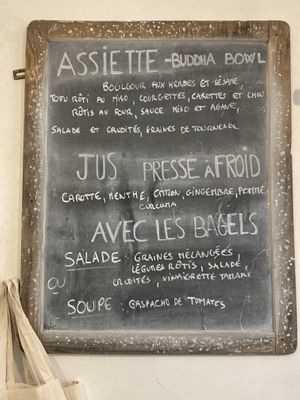 ASSIETTE - BUDDHA BOWL
BOULGOUR AUX HERBES ET SÉSAME,
TOFU RÔTI AU MISO, COURGETTES, CAROTTES ET CHOU
RÔTIS AU FOUR, SAUCE MISO ET AGAVE,
SALADE ET CRUDITÉS, GRAINES DE TOURNESOL
JUS PRESSÉ À FROID
CAROTTE, MENTHE, CITRON, GINGEMBRE, POMME
CURCUMA
AVEC LES BAGELS
SALADE : GRAINES MÉLANGÉES,
LÉGUMES RÔTIS, SALADE,
OU
CRUDITÉS, VINAIGRETTE TAMARI
SOUPE : GASPACHO DE TOMATES